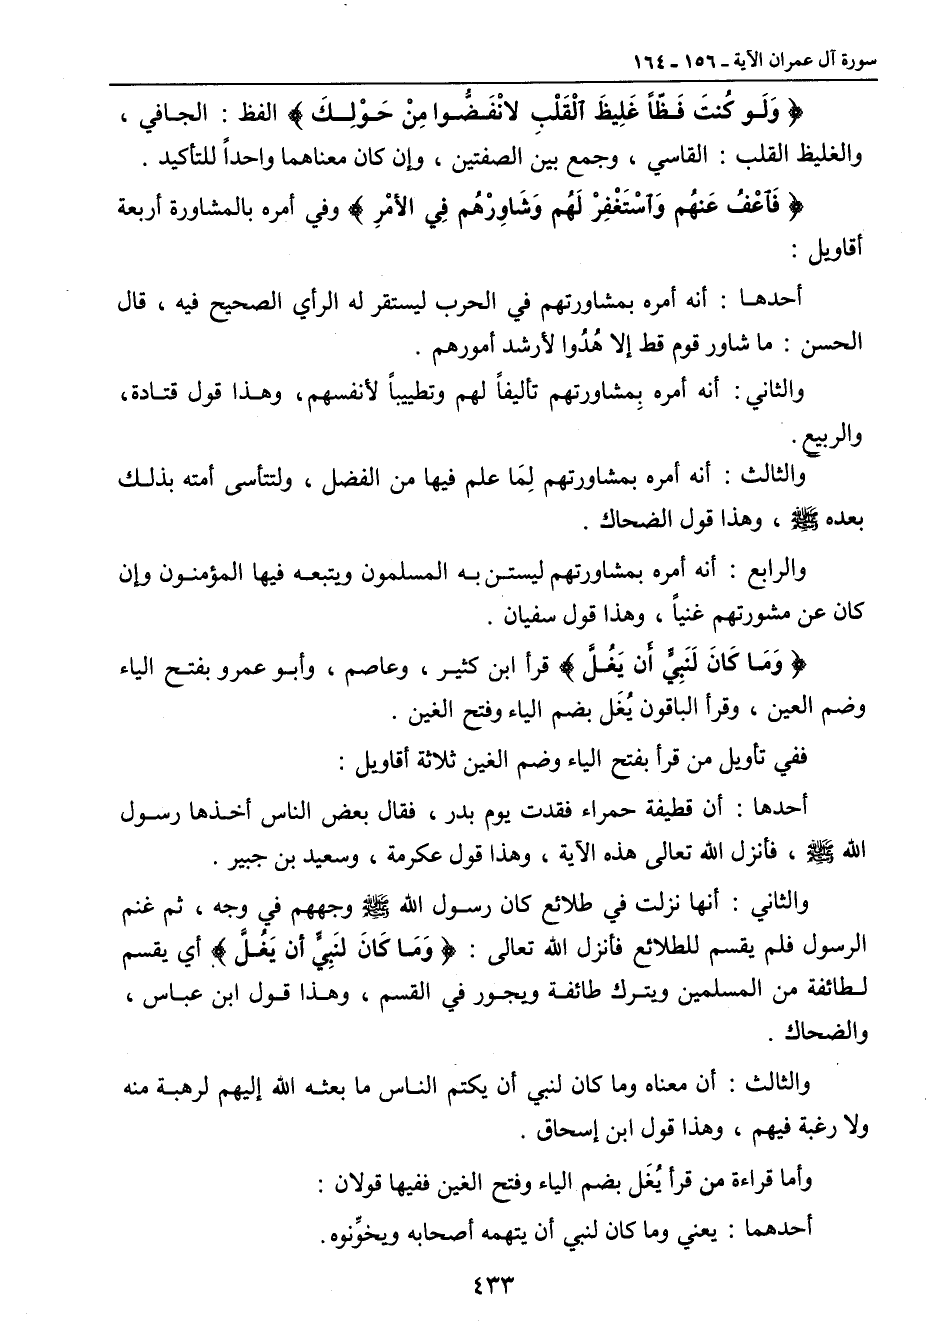 سورة آل عمران الآية ـ ١٥٦ ـ ١٦٤
﴿ وَلَـو كُنتَ فَـظّاً غَلِيظَ ٱلْقَلْبِ لانْفَـضُّـوا مِنْ حَـوْلِـكَ ﴾ الفظ : الجـافي ،
والغليظ القلب : القاسي ، وجمع بين الصفتين ، وإن كان معناهما واحداً للتأكيد .
﴿ فَٱعْفُ عَنهُم وَٱسْتَغْفِرْ لَهُم وَشَاوِرْهُم فِي الأمْرِ ﴾ وفي أمره بالمشاورة أربعة
أقاويل :
أحدهـا : أنه أمره بمشاورتهم في الحرب ليستقر له الرأي الصحيح فيه ، قال
الحسن : ما شاور قوم قط إلا هُدُوا لأرشد أمورهم .
والثاني : أنه أمره بِمشاورتهم تأليفاً لهم وتطييباً لأنفسهم، وهـذا قول قتـادة،
والربيع .
والثالث : أنه أمره بمشاورتهم لِمَا علم فيها من الفضل ، ولتتأسى أمته بذلـك
بعده ﷺ ، وهذا قول الضحاك .
والرابع : أنه أمره بمشاورتهم ليستـن بـه المسلمون ويتبعـه فيها المؤمنـون وإن
كان عن مشورتهم غنياً ، وهذا قول سفيان .
﴿ وَمَـا كَانَ لَنَبِيٍّ أَن يَغُلَّ ﴾ قرأ ابن كثيـر ، وعاصم ، وأبـو عمرو بفتـح الياء
وضم العين ، وقرأ الباقون يُغَل بضم الياء وفتح الغين .
ففي تأويل من قرأ بفتح الياء وضم الغين ثلاثة أقاويل :
أحدها : أن قطيفة حمراء فقدت يوم بدر ، فقال بعض الناس أخـذها رسـول
الله ﷺ ، فأنزل الله تعالى هذه الآية ، وهذا قول عكرمة ، وسعيد بن جبير .
والثاني : أنها نزلت في طلائع كان رسـول الله ﷺ وجههم في وجه ، ثم غنم
الرسول فلم يقسم للطلائع فأنزل الله تعالى : ﴿ وَمَـا كَانَ لنَبِيٍّ أن يَغُـلَّ ﴾ أي يقسم
لـطائفة من المسلمين ويتـرك طائفـة ويجـور في القسم ، وهـذا قـول ابن عبـاس ،
والضحاك .
والثالث : أن معناه وما كان لنبي أن يكتم النـاس ما بعثـه الله إليهم لرهبـة منه
ولا رغبة فيهم ، وهذا قول ابن إسحاق .
وأما قراءة من قرأ يُغَل بضم الياء وفتح الغين ففيها قولان :
أحدهما : يعني وما كان لنبي أن يتهمه أصحابه ويخوِّنوه.
٤٣٣